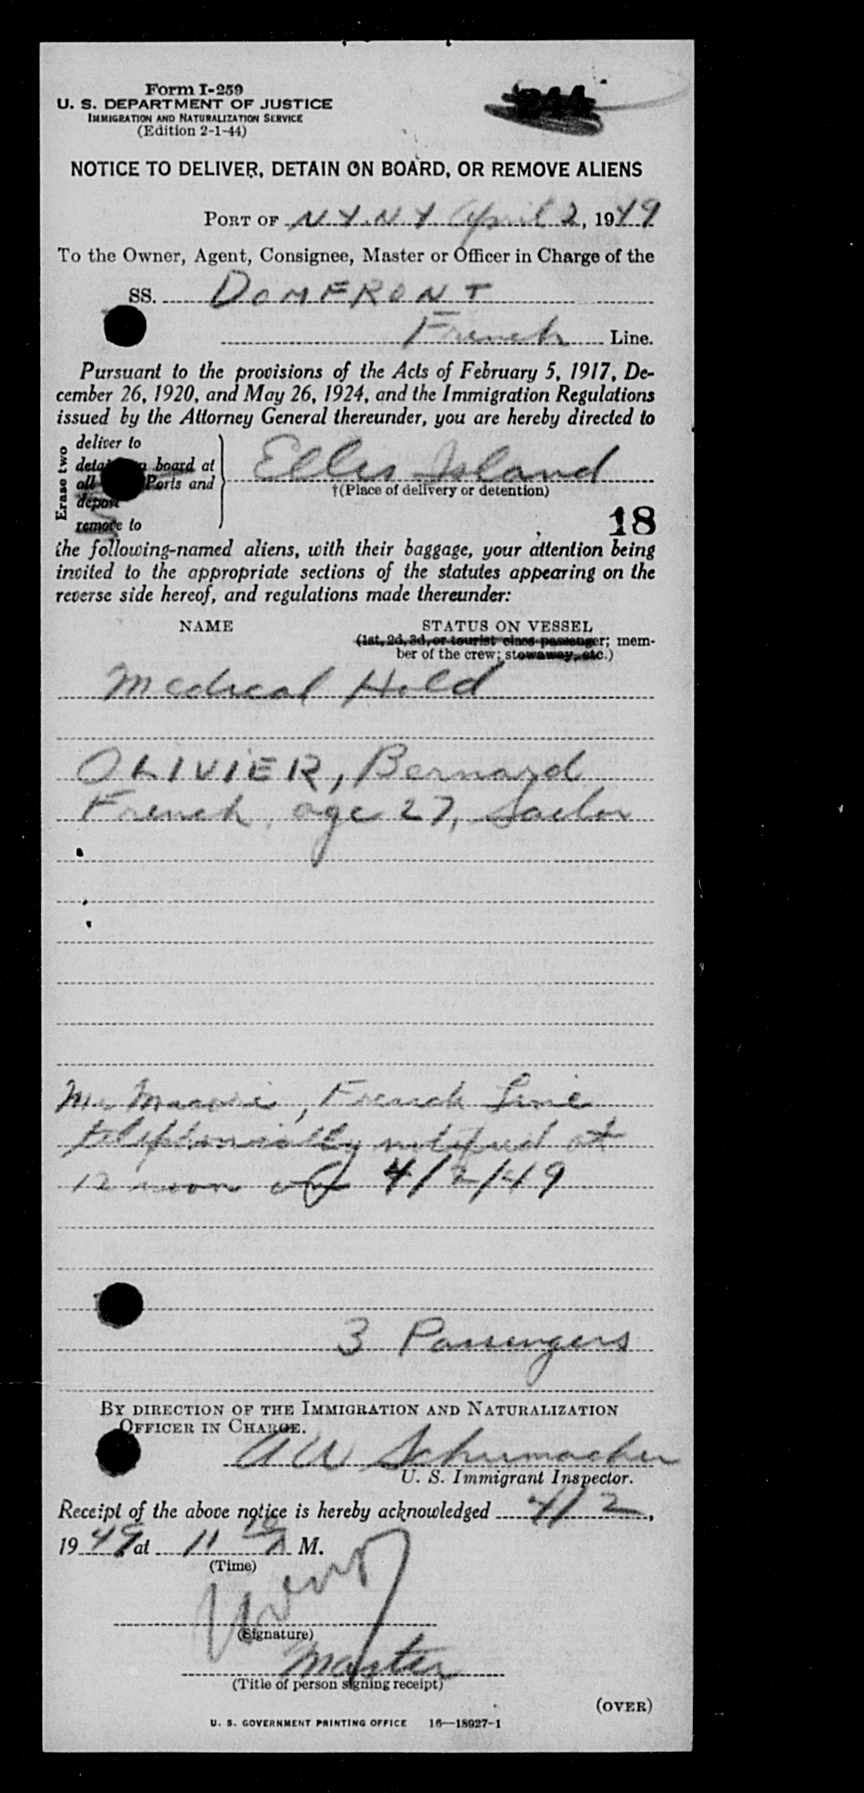 Form I-259
U. S. DEPARTMENT OF JUSTICE
IMMIGRATION AND NATURALIZATION SERVICE
(Edition 2-1-44)
244
NOTICE TO DELIVER, DETAIN ON BOARD, OR REMOVE ALIENS
PORT OF N Y. N Y April 2, 1949
To the Owner, Agent, Consignee, Master or Officer in Charge of the
SS. DOMFRONT
French Line.
Pursuant to the provisions of the Acts of February 5, 1917, De-
cember 26, 1920, and May 26, 1924, and the Immigration Regulations
issued by the Attorney General thereunder, you are hereby directed to
Erase two
deliver to
board at
all Ports and
depot
remove to
Ellis Island
†(Place of delivery or detention)
18
the following-named aliens, with their baggage, your attention being
invited to the appropriate sections of the statutes appearing on the
reverse side hereof, and regulations made thereunder:
NAME STATUS ON VESSEL
(1st, 2d, 3d, or tourist class passenger; mem-
ber of the crew; stowaway, etc.)
Medical Hold
OLIVIER, Bernard
French, age 27, Sailor
Mr. French Line
telephonically notified at
12 noon on 4/2/49
3 Passengers
BY DIRECTION OF THE IMMIGRATION AND NATURALIZATION
OFFICER IN CHARGE.
A W Schumacher
U. S. Immigrant Inspector.
Receipt of the above notice is hereby acknowledged 4/2,
1949 at 11 10 A M.
(Time)
(Signature)
Master
(Title of person signing receipt)
(OVER)
U. S. GOVERNMENT PRINTING OFFICE 16—18027-1